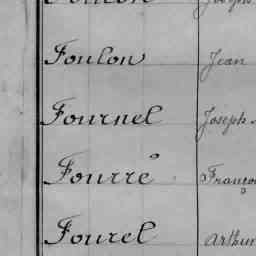 Foulon Jean
Fournel Joseph
Fourré Franço
Fourel Arthur